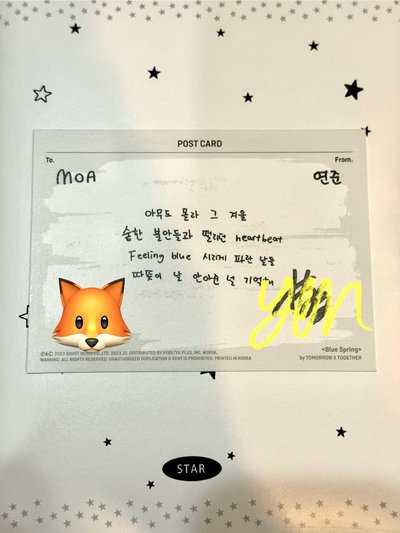 POST CARD
To.
From.
MOA
연준
아무도 몰라 그 겨울
숱한 불안들과 떨리던 heartbeat
Feeling blue 시리게 파란 날들
따뜻이 날 안아준 널 기억해
yun
<Blue Spring>
by TOMORROW X TOGETHER
℗&© 2023 BIGHIT MUSIC Co.,LTD. 2023.10. DISTRIBUTED BY HYBE/YG PLUS, INC. KOREA.
WARNING: ALL RIGHTS RESERVED. UNAUTHORIZED DUPLICATION & RENT IS PROHIBITED. PRINTED IN KOREA
STAR